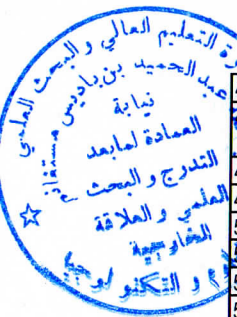 رة التعليم العالي و البحث العلمي
عبد الحميد بن باديس مستغانم
نيابة
العمادة لما بعد
التدرج و البحث
العلمي و العلاقة
الخارجية
و التكنولوجيا